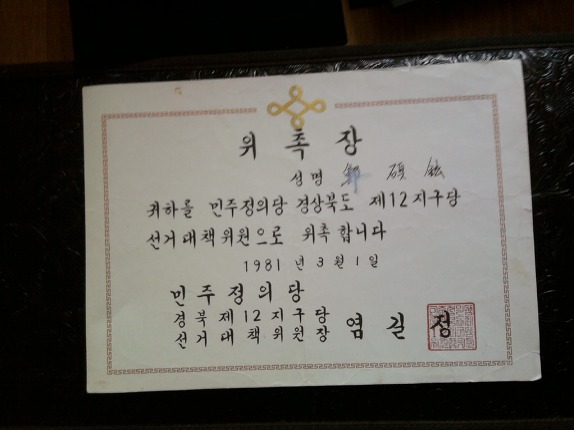 위촉장
성명 鄭 碩 鉉
귀하를 민주정의당 경상북도 제12지구당
선거대책위원으로 위촉합니다
1981 년 3 월 1 일
민주정의당
경북제12지구당
선거대책위원장 염길정